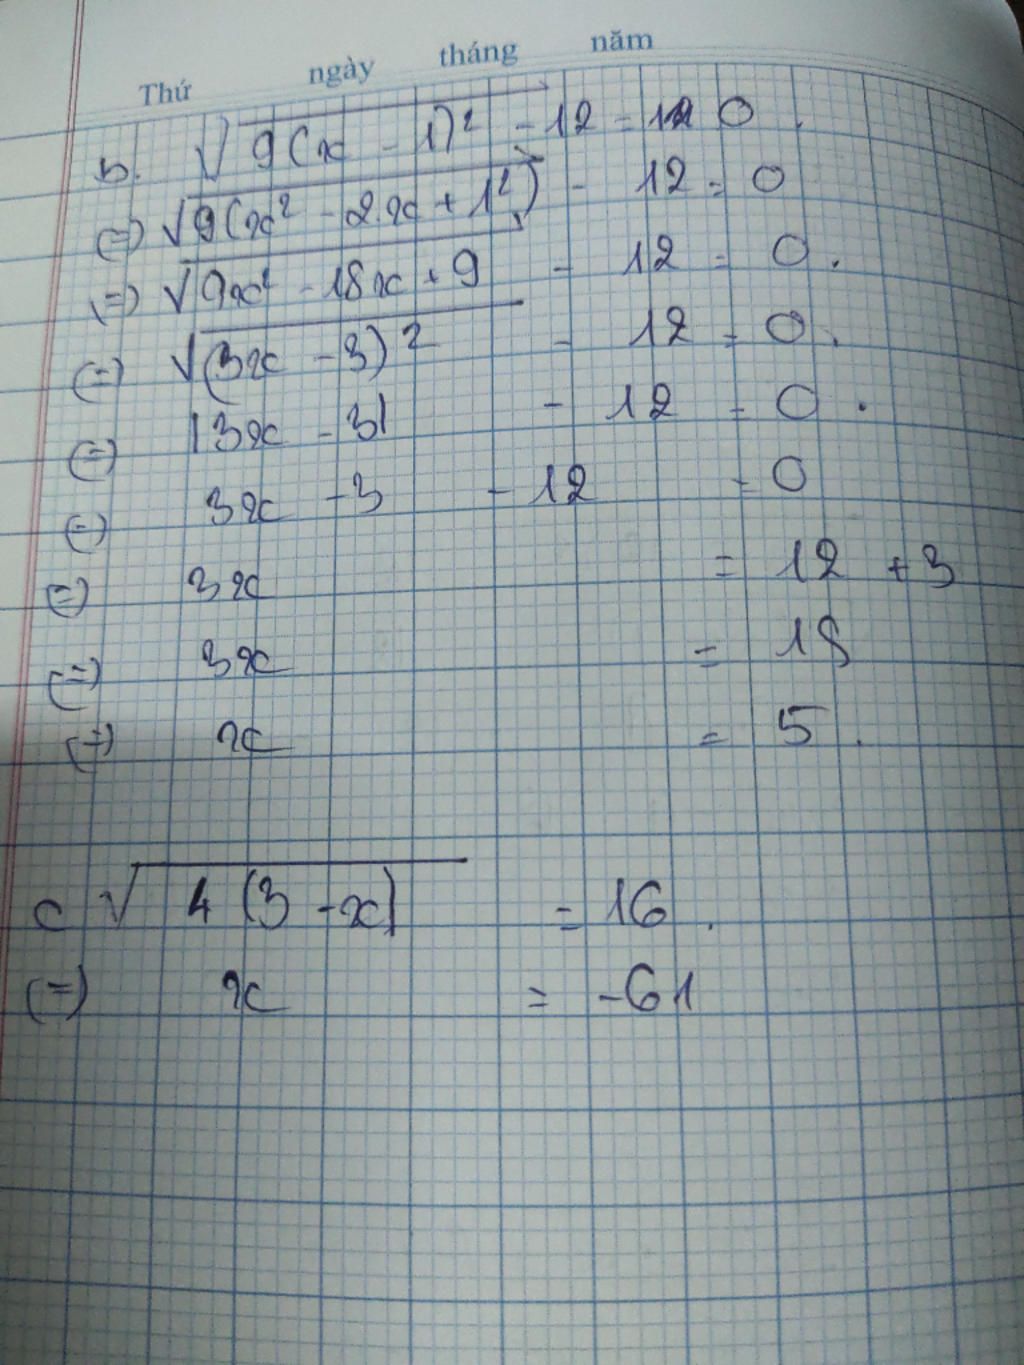 Thứ ngày tháng năm
b. √9(x - 1)² - 12 = 0.
(=) √9(x² - 2x + 1²) - 12 = 0
(=) √9x² - 18x + 9 - 12 = 0.
(=) √(3x - 3)² - 12 = 0.
(=) |3x - 3| - 12 = 0.
(=) 3x - 3 - 12 = 0
(=) 3x = 12 + 3
(=) 3x = 15
(=) x = 5.
c √4(3 - x) = 16.
(=) x = -61